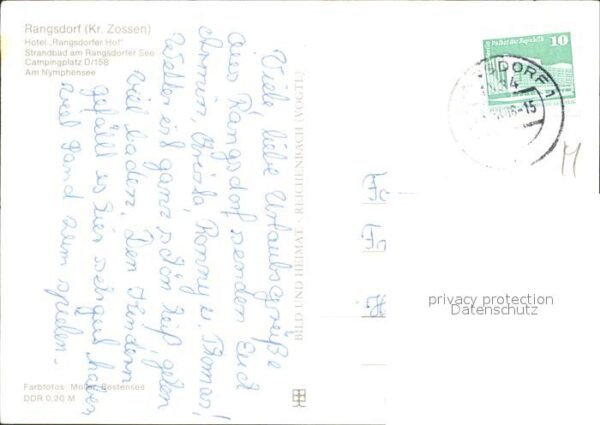 Rangsdorf (Kr. Zossen)
Hotel „Rangsdorfer Hof"
Strandbad am Rangsdorfer See
Campingplatz D/158
Am Nymphensee
Viele, liebe Urlaubsgrüße
aus Rangsdorf senden Euch
Ronny u. Thomas!
Wetter ist ganz schön heiß, gehen
viel baden. Den Kindern
gefällt es hier sehr gut haben
viel Sand zum spielen.
BILD UND HEIMAT · REICHENBACH (VOGTL)
Palast der Republik
10
privacy protection
Datenschutz
Farbfotos: Bestensee
DDR 0,20 M